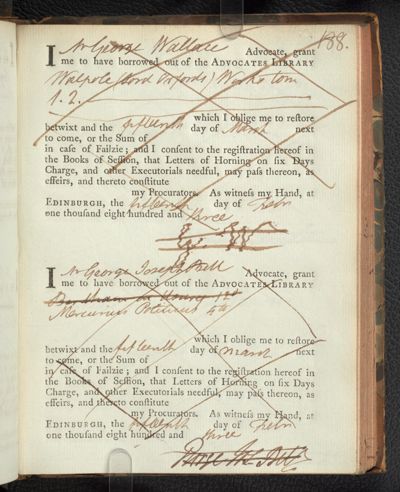 188.
I Mr George Wallace Advocate, grant
me to have borrowed out of the ADVOCATES LIBRARY
Walpole (Lord Orfords) Works tom
1. 2.
which I oblige me to restore
betwixt and the fifteenth day of March next
to come, or the Sum of
in case of Failzie; and I consent to the registration hereof in
the Books of Session, that Letters of Horning on six Days
Charge, and other Executorials needful, may pass thereon, as
effeirs, and thereto constitute
my Procurators. As witness my Hand, at
EDINBURGH, the fifteenth day of Febry
one thousand eight hundred and three
I Mr George Joseph Bell Advocate, grant
me to have borrowed out of the ADVOCATES LIBRARY
1st
Mercurius Politicus 4to
which I oblige me to restore
betwixt and the fifteenth day of March next
to come, or the Sum of
in case of Failzie; and I consent to the registration hereof in
the Books of Session, that Letters of Horning on six Days
Charge, and other Executorials needful, may pass thereon, as
effeirs, and thereto constitute
my Procurators. As witness my Hand, at
EDINBURGH, the fifteenth day of Febry
one thousand eight hundred and three